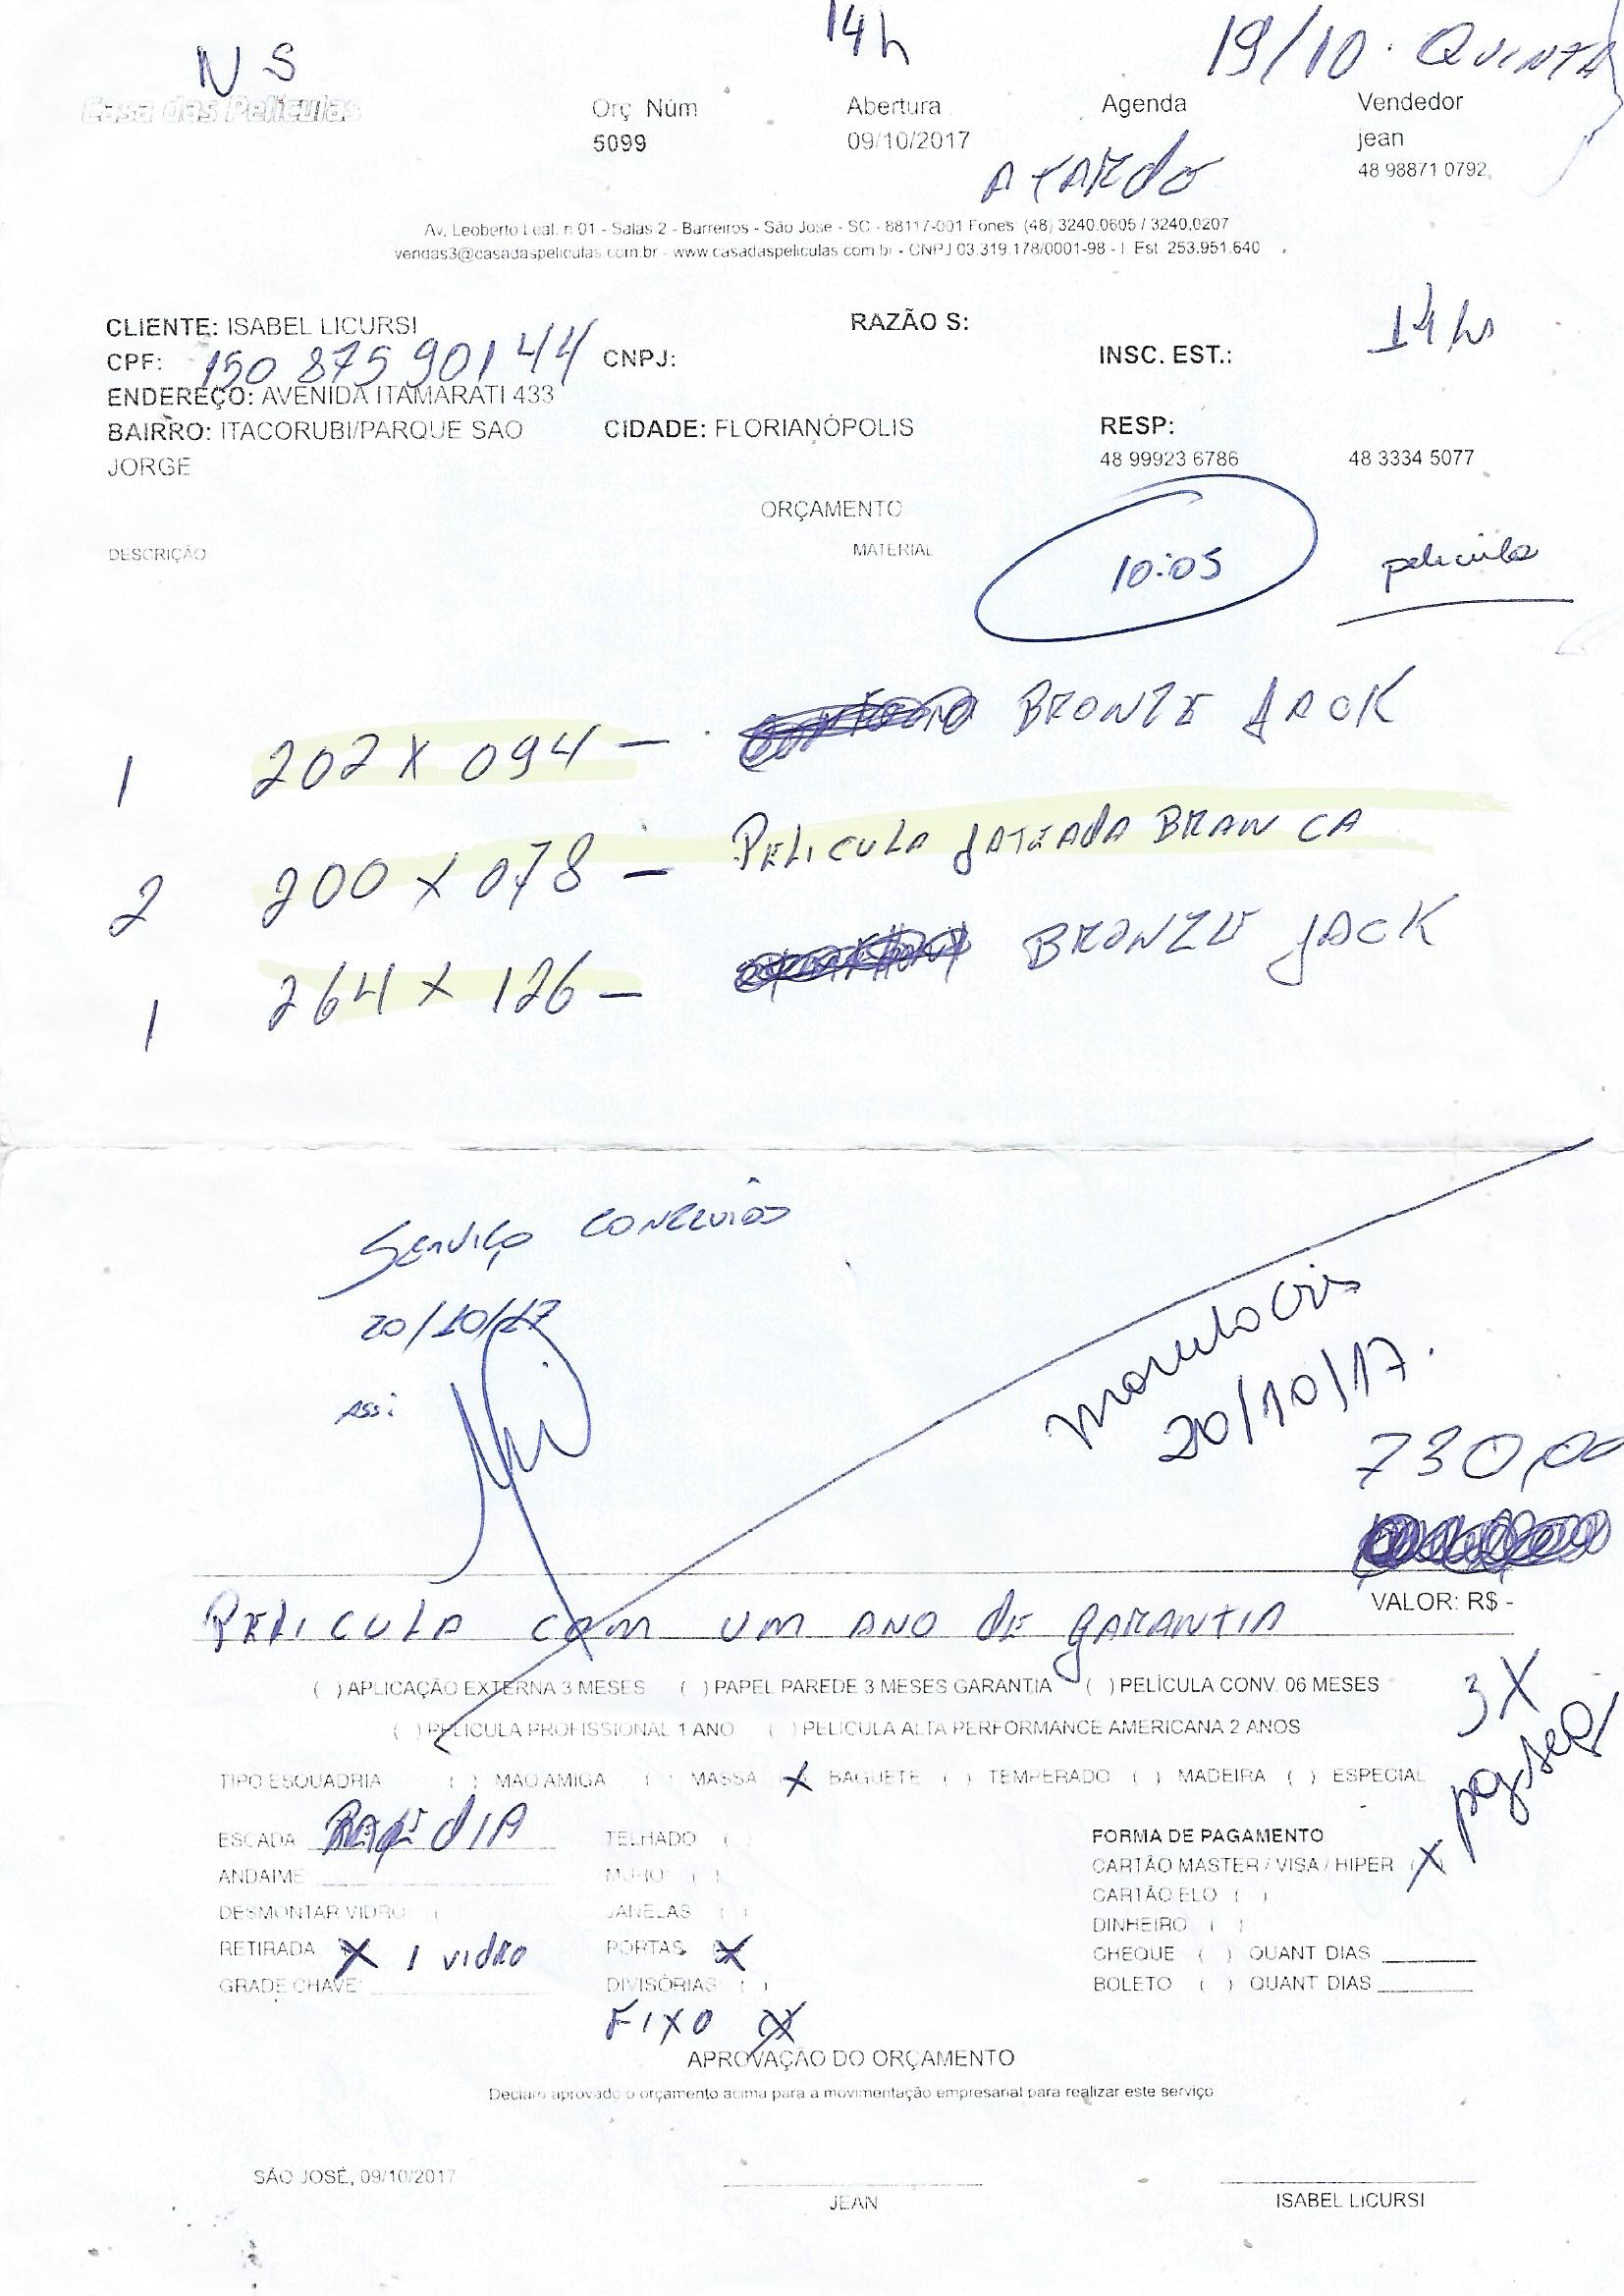 14h
19/10. QUINTA
NS
Casa das Películas
Orç Núm Abertura Agenda Vendedor
5099 09/10/2017 jean
A TARDE
48 98871 0792
Av. Leoberto Leal, n 01 - Salas 2 - Barreiros - São Jose - SC - 88117-001 Fones: (48) 3240.0605 / 3240.0207
vendas3@casadaspeliculas.com.br - www.casadaspeliculas.com.br - CNPJ 03.319.178/0001-98 - I. Est. 253.951.640
CLIENTE: ISABEL LICURSI RAZÃO S: 14hs
CPF: 150 875 901 44 CNPJ: INSC. EST.:
ENDEREÇO: AVENIDA ITAMARATI 433
BAIRRO: ITACORUBI/PARQUE SAO CIDADE: FLORIANÓPOLIS RESP:
JORGE 48 99923 6786 48 3334 5077
ORÇAMENTO
DESCRIÇÃO MATERIAL
10:05 pelicula
1 202 X 094 - BRONZE JACK
2 200 X 078 - PELICULA JATEADA BRANCA
1 264 X 126 - BRONZE JACK
SERVIÇO CONCLUIDO
20/10/17
ASS:
20/10/17.
730,00
VALOR: R$ -
PELICULA COM UM ANO DE GARANTIA
( ) APLICAÇÃO EXTERNA 3 MESES ( ) PAPEL PAREDE 3 MESES GARANTIA ( ) PELÍCULA CONV. 06 MESES
( ) PELICULA PROFISSIONAL 1 ANO ( ) PELICULA ALTA PERFORMANCE AMERICANA 2 ANOS
3X
pagseg
TIPO ESQUADRIA ( ) MAO AMIGA ( ) MASSA X BAGUETE ( ) TEMPERADO ( ) MADEIRA ( ) ESPECIAL
ESCADA TELHADO ( ) FORMA DE PAGAMENTO
ANDAIME MURO ( ) CARTÃO MASTER / VISA / HIPER (X)
DESMONTAR VIDRO ( JANELAS ( ) CARTÃO ELO ( )
RETIRADA X 1 VIDRO PORTAS X DINHEIRO ( )
GRADE CHAVE DIVISÓRIAS ( ) CHEQUE ( ) QUANT DIAS
BOLETO ( ) QUANT DIAS
FIXO X
APROVAÇÃO DO ORÇAMENTO
Declaro aprovado o orçamento acima para a movimentação empresarial para realizar este serviço
SÃO JOSÉ, 09/10/2017
JEAN ISABEL LICURSI